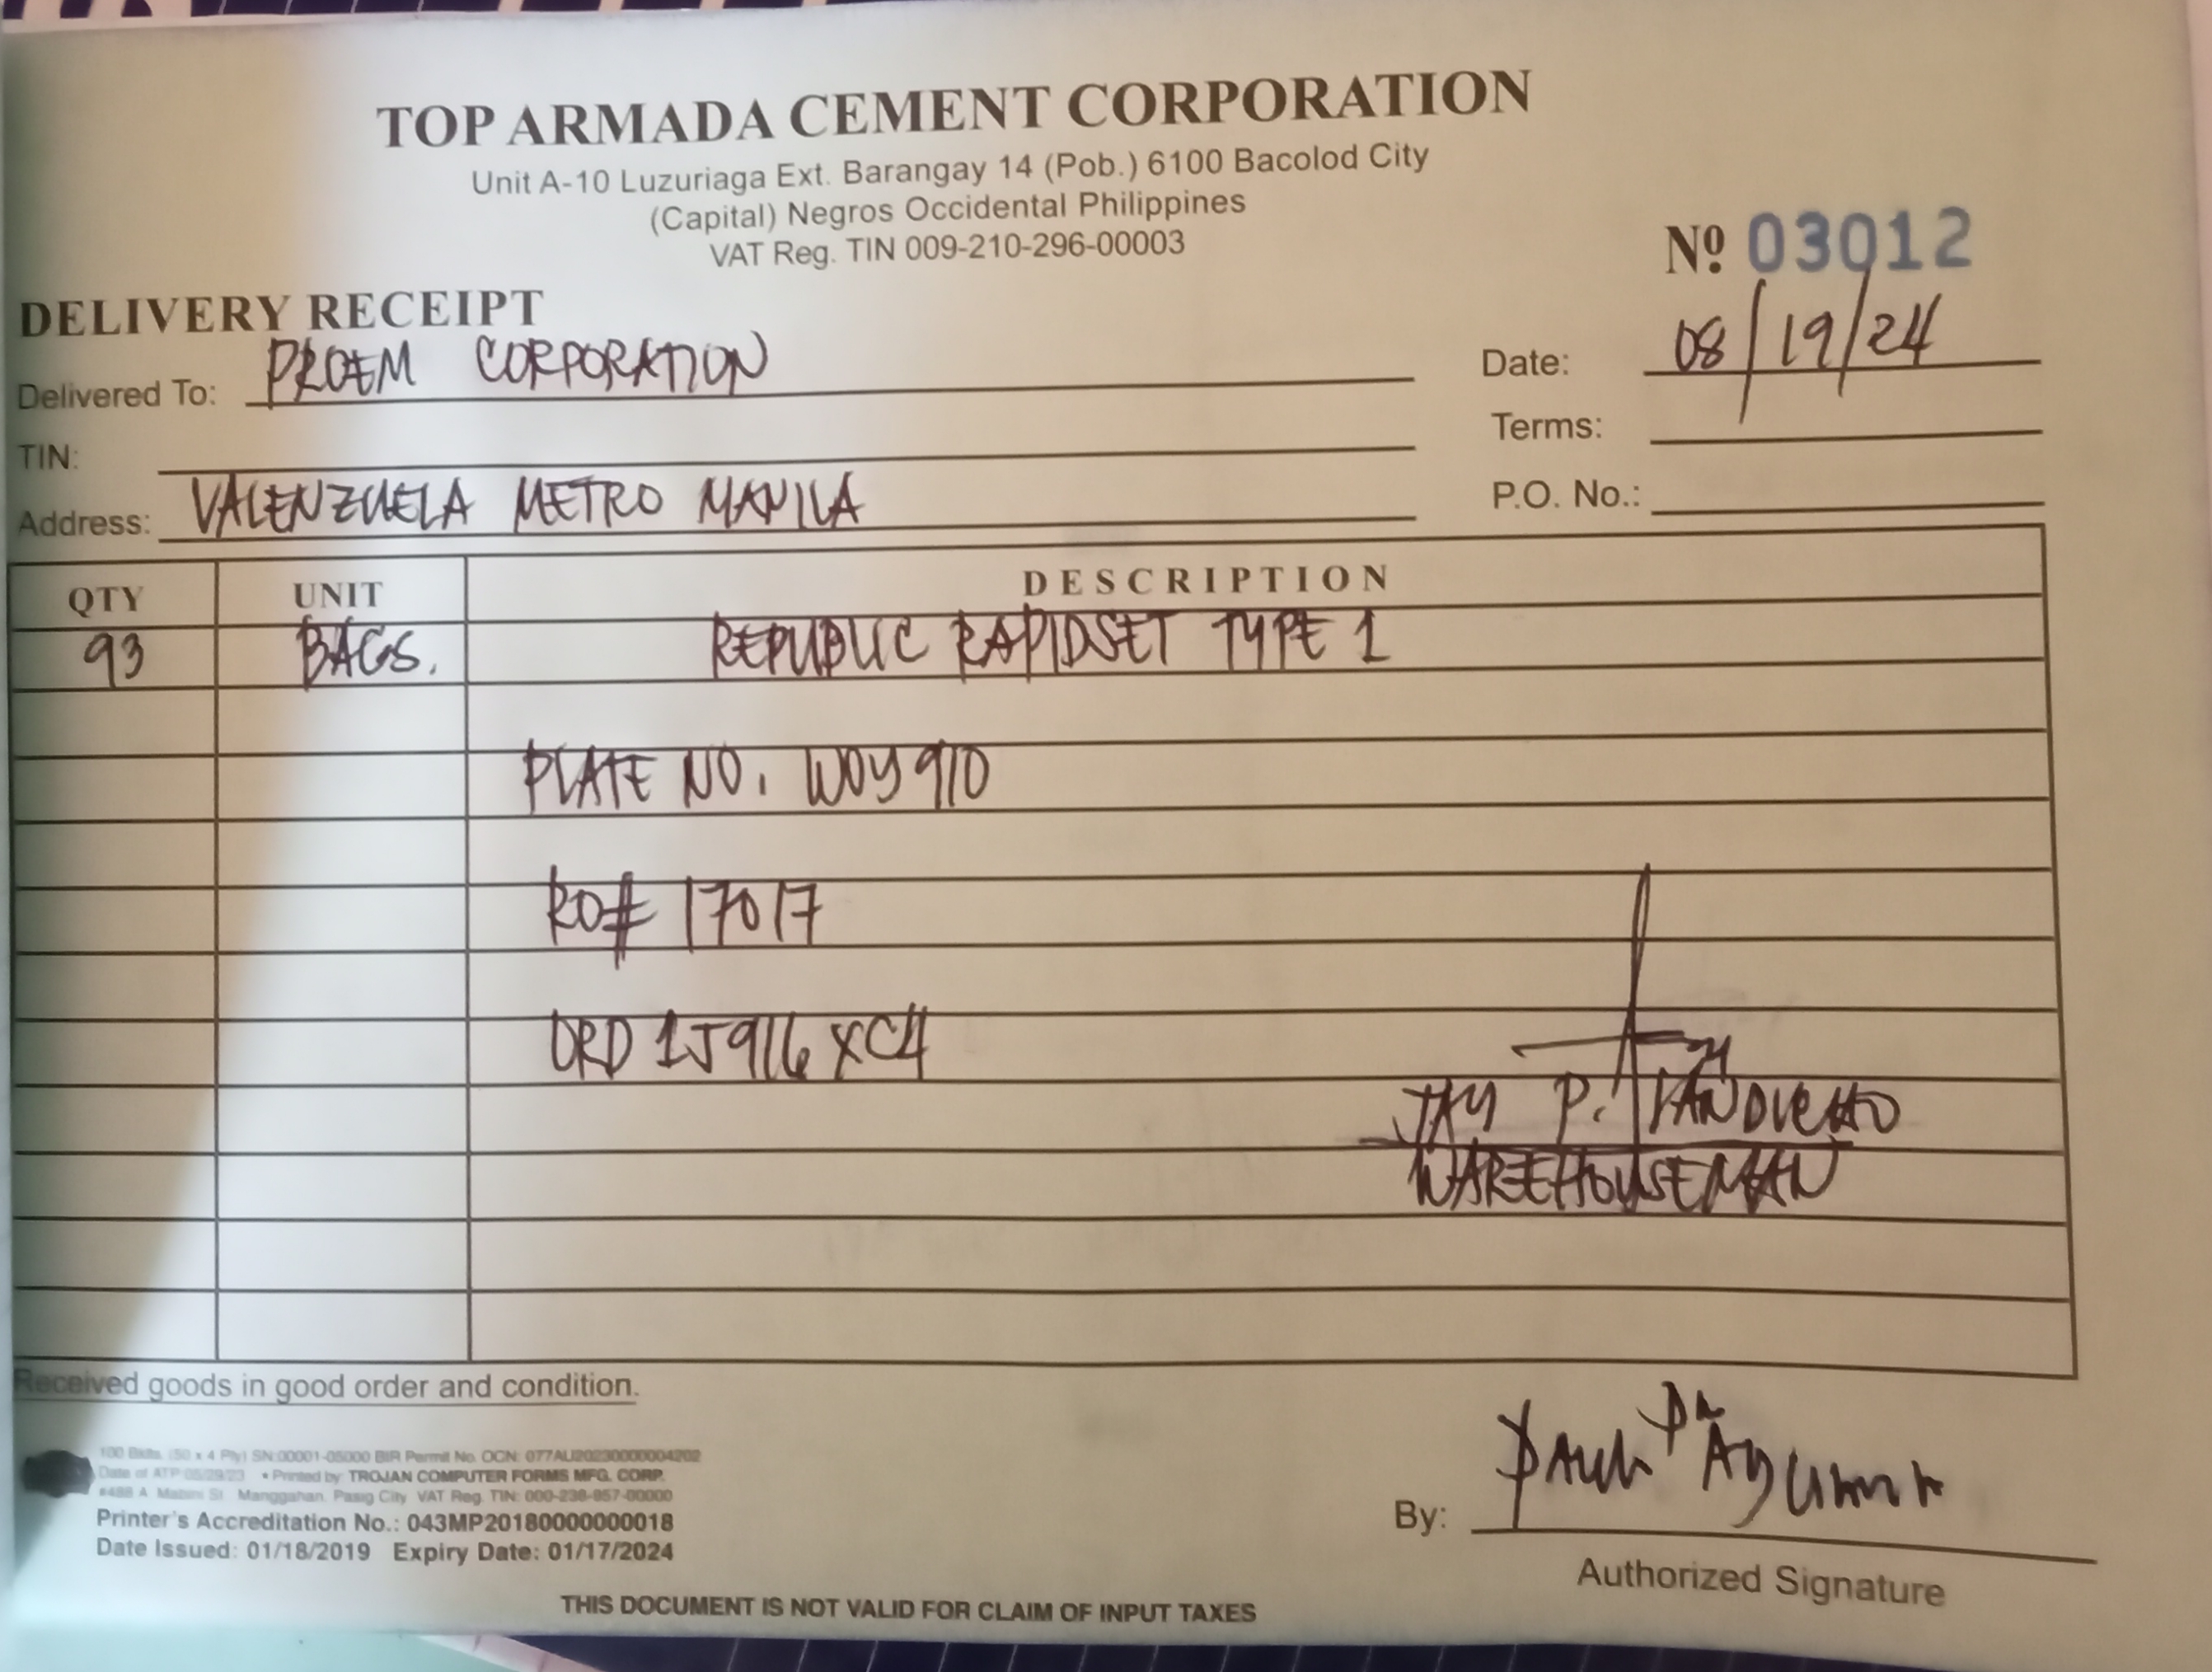 TOP ARMADA CEMENT CORPORATION
Unit A-10 Luzuriaga Ext. Barangay 14 (Pob.) 6100 Bacolod City
(Capital) Negros Occidental Philippines
VAT Reg. TIN 009-210-296-00003
Nº 03012
DELIVERY RECEIPT
Delivered To: PROEM CORPORATION
Date: 08/19/24
TIN:
Terms:
Address: VALENZUELA METRO MANILA
P.O. No.:
QTY UNIT DESCRIPTION
93 BAGS. REPUBLIC RAPIDSET TYPE 1
PLATE NO. WOY 910
RO# 17017
ORD 1J916XC4
JAY P.
WAREHOUSEMAN
Received goods in good order and condition.
100 Bklts. (50 x 4 Ply) SN:00001-05000 BIR Permit No. OCN: 077AU20230000004202
Date of ATP 05/29/23 • Printed by: TROJAN COMPUTER FORMS MFG. CORP.
#488 A. Mabini St. Manggahan, Pasig City VAT Reg. TIN: 000-238-857-00000
Printer's Accreditation No.: 043MP20180000000018
Date Issued: 01/18/2019 Expiry Date: 01/17/2024
By:
Authorized Signature
THIS DOCUMENT IS NOT VALID FOR CLAIM OF INPUT TAXES